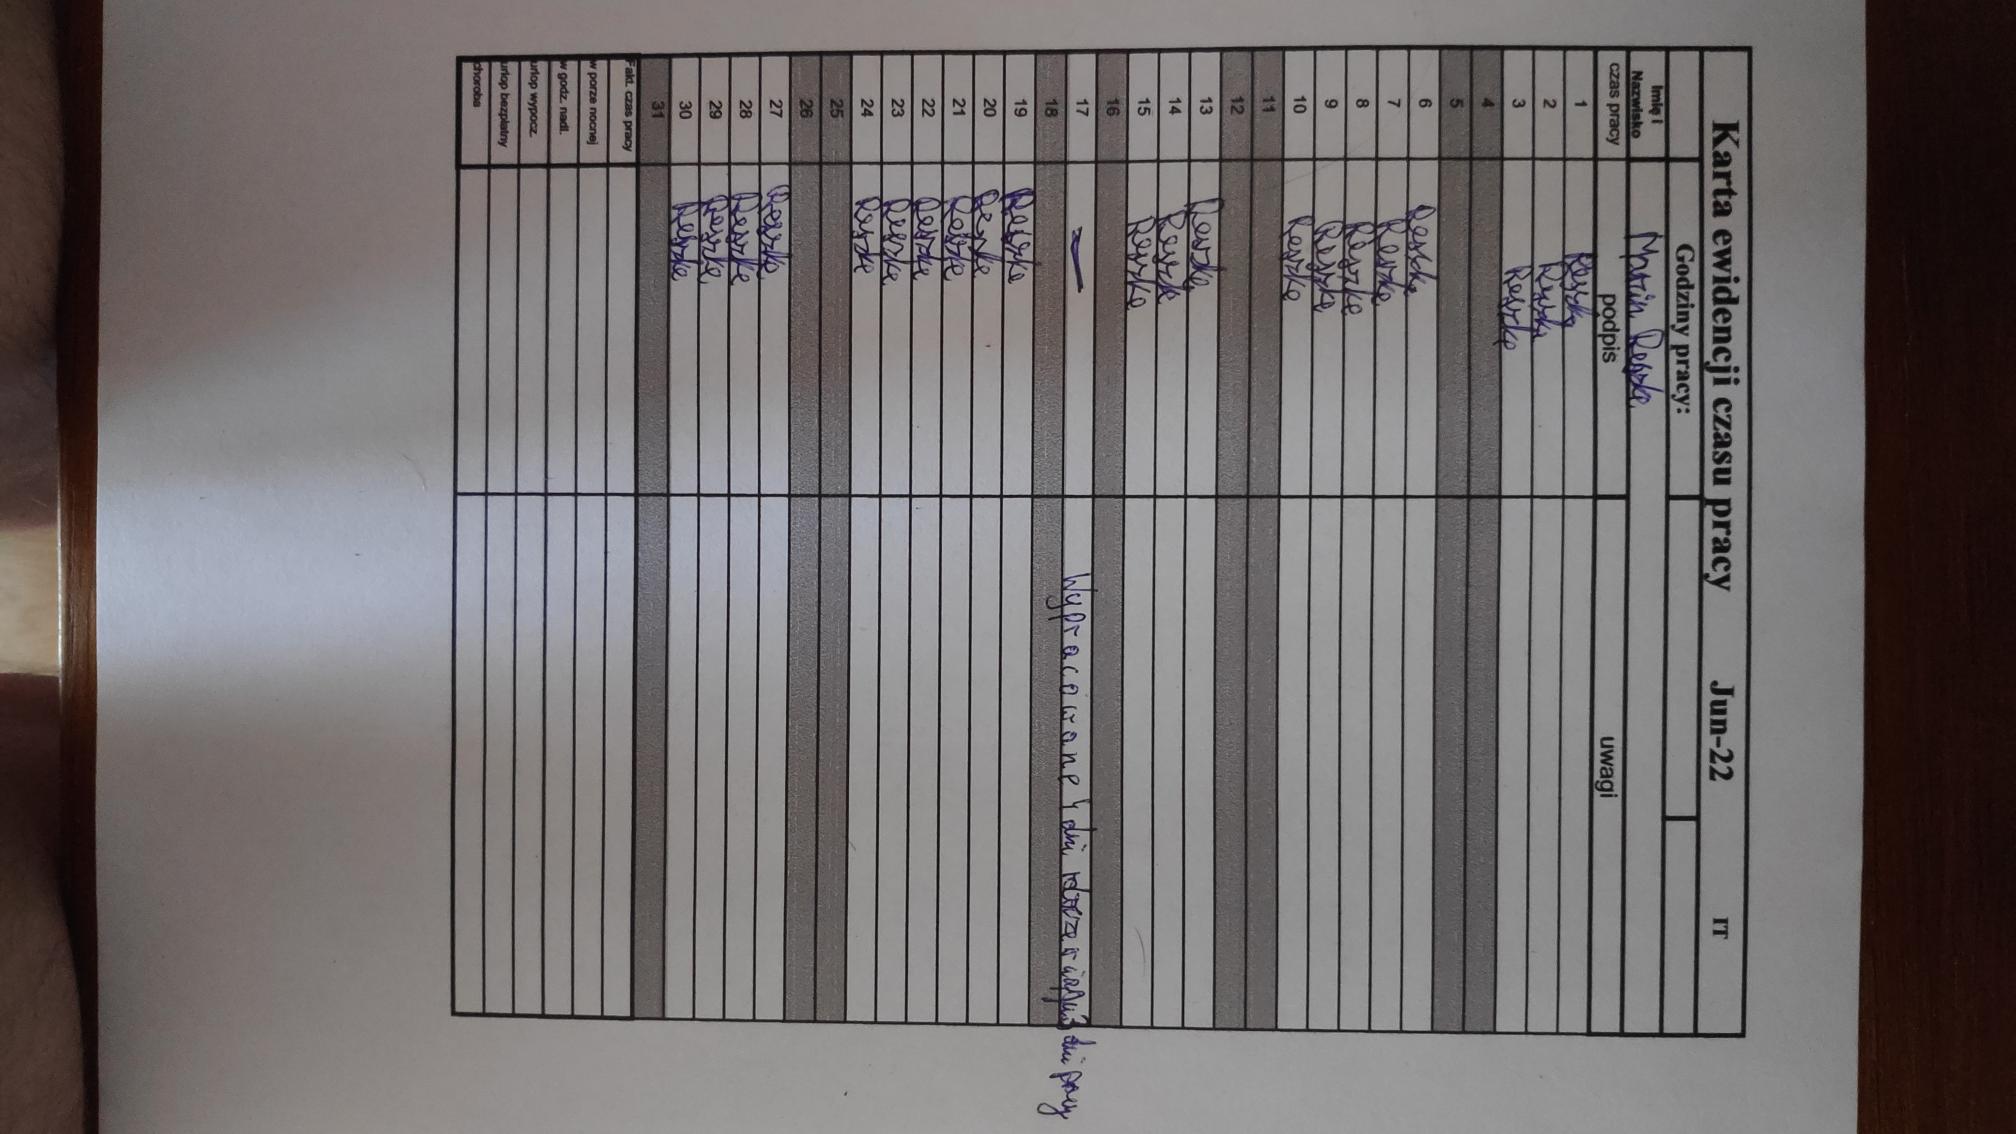 Karta ewidencji czasu pracy Jun-22 IT
Godziny pracy:
Imię i Nazwisko Marcin Reszke
czas pracy podpis uwagi
1 Reszke
2 Reszke
3 Reszke
4
5
6 Reszke
7 Reszke
8 Reszke
9 Reszke
10 Reszke
11
12
13 Reszke
14 Reszke
15 Reszke
16
17 — Wypracowane 4 dni dni pracy
18
19 Reszke
20 Reszke
21 Reszke
22 Reszke
23 Reszke
24 Reszke
25
26
27 Reszke
28 Reszke
29 Reszke
30 Reszke
31
Fakt. czas pracy
w porze nocnej
w godz. nadl.
urlop wypocz.
urlop bezpłatny
choroba